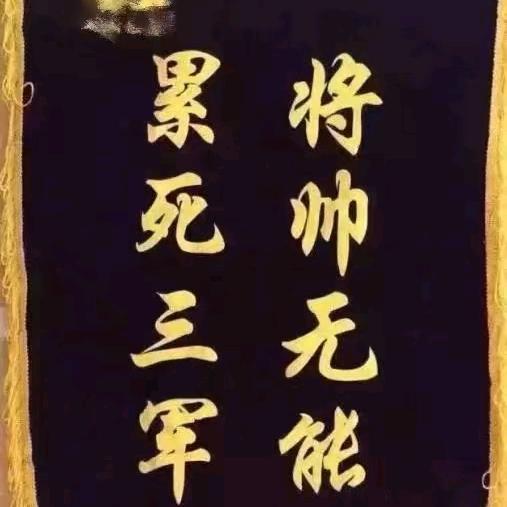 将帅无能
累死三军